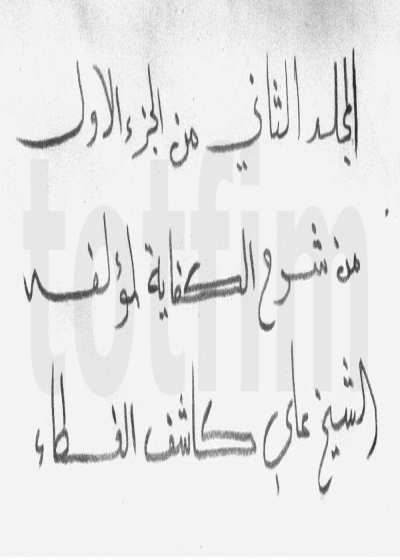 المجلد الثاني من الجزء الاول
من شرح الكفاية لمؤلفه
الشيخ علي كاشف الغطاء
totfim